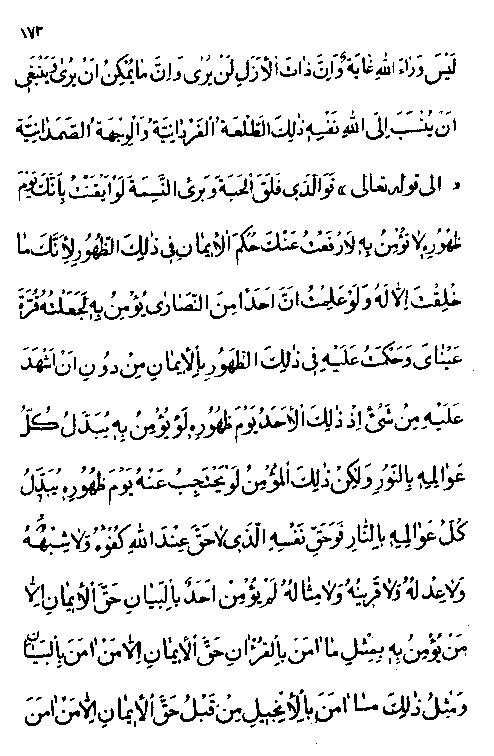 ١٧٣
لَیْسَ وَرٰاءَ اللّٰهِ غٰایَة وَاِنَّ ذٰاتَ الْأَزَلِ لَنْ یُرٰی وَاِنَّ مٰا یُمْکِنُ اَنْ یُرٰی وَ یَنْبَغی
اَنْ یُنْسَبَ اِلَی اللّٰهِ نَفْسِهِ ذٰلِكَ الطَّلْعَةُ الْفَرْدٰانِیَّةُ وَالْوِجْهَةُ الصَّمَدٰانِیَّةُ
« الی قوله تعالی » فَوَالَّذی فَلَقَ الْحَبَّةَ وَبَرَیَٔ النَّسَمَةَ لَوْ اَیْقَنْتُ بِأَنَّكَ یَوْمَ
ظُهُورِهِ لٰا تُؤْمِنُ بِهِ لَارْفَعْتُ عَنْكَ حُکْمَ الْأیمٰانِ فی ذٰلِكَ الظُّهُورِ لِأَنَّكَ مٰا
خُلِقْتَ اِلّٰا لَهُ وَلَوْ عَلِمْتُ اَنَّ اَحَدًا مِنَ النَّصٰارٰی یُؤْمِنُ بِهِ لَجَعَلْتُهُ قُرَّةَ
عَیْنٰایَ وَحَکَمْتُ عَلَیْهِ فی ذٰلِكَ الظُّهُورِ بِالْأیمٰانِ مِنْ دُونِ اَنْ اَشْهَدَ
عَلَیْهِ مِنْ شَیْءٍ اِذْ ذٰلِكَ الْأَحَدُ یَوْمَ ظُهُورِهِ لَوْ یُؤْمِنُ بِهِ یُبَدِّلُ کُلَّ
عَوٰالِمِهِ بِالنُّورِ وَلٰکِنْ ذٰلِكَ الْمُؤْمِنُ لَوْ یَحْتَجِبُ عَنْهُ یَوْمَ ظُهُورِهِ یُبَدِّلُ
کُلَّ عَوٰالِمِهِ بِالنّٰارِ فَوَحَقِّ نَفْسِهِ الَّذی لٰا حَقَّ عِنْدَ اللّٰهِ کُفْوُهُ وَلٰا شِبْهُهُ
وَلٰا عِدْلُهُ وَلٰا قَرینُهُ وَلٰا مِثٰالُهُ لَمْ یُؤْمِنْ اَحَدٌ بِالْبَیٰانِ حَقَّ الْأیمٰانِ اِلّٰا
مَنْ یُؤْمِنُ بِهِ بِمِثْلِ مٰا اٰمَنَ بِالْفُرْقٰانِ حَقَّ الْأیمٰانِ اِلّٰا مَنْ اٰمَنَ بِالْبَیٰانِ
وَمِثْلُ ذٰلِكَ مٰا اٰمَنَ بِالْأِنْجیلِ مِنْ قَبْلُ حَقَّ الْأیمٰانِ اِلّٰا مَنْ اٰمَنَ